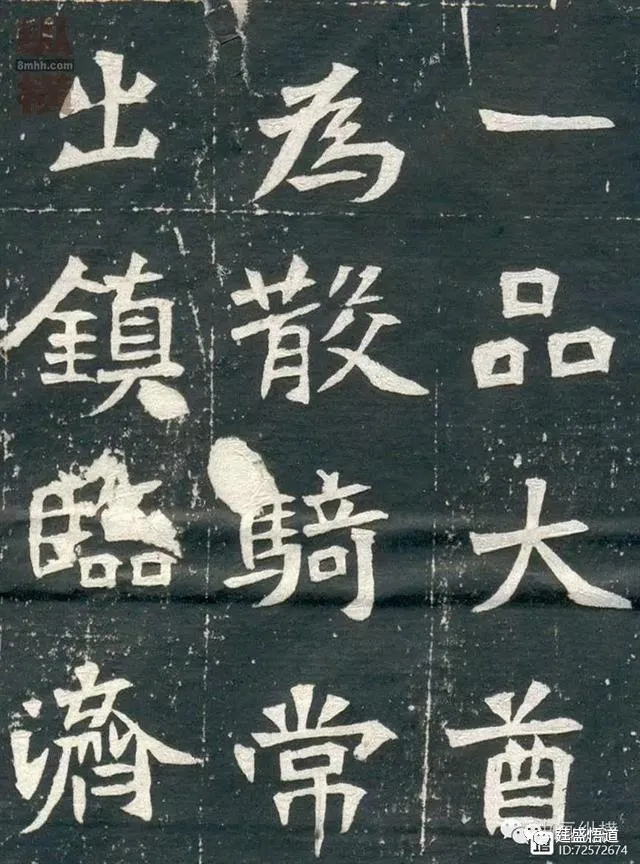 一品大酋
為散騎常
出鎮臨濟
8mhh.com
廷盛悟道
ID:72572674